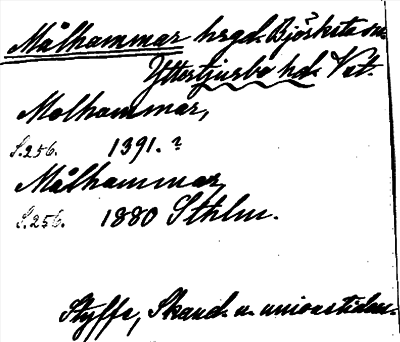 Målhammar hrgd. Björksta sn
Yttertjurbo hd. Vstl.
Molhammar,
S. 256. 1391. ?
Målhammar,
S. 256. 1880 Sthlm.
Styffe, Skand. u. unionstiden.